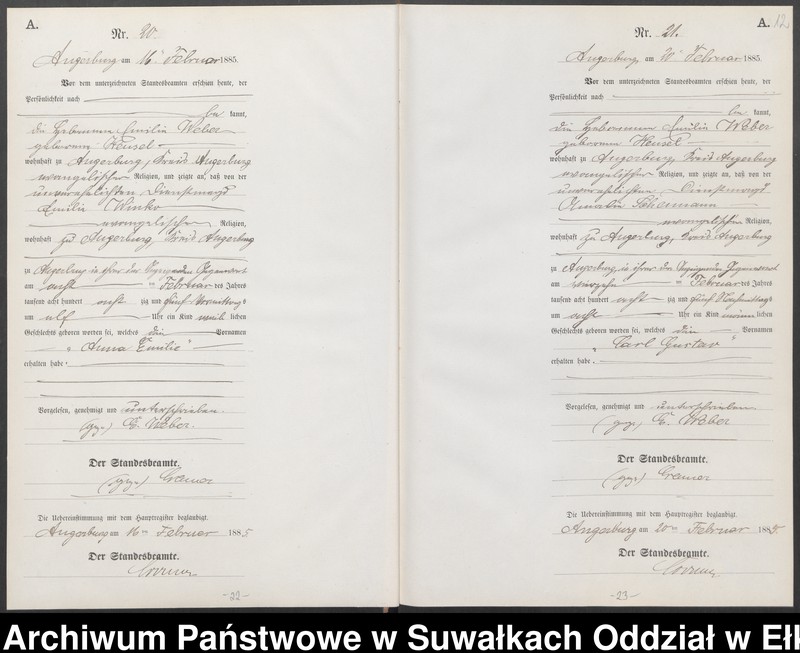 A.
Nr. 20.
Angerburg am 16ten Februar 1885.
Vor dem unterzeichneten Standesbeamten erschien heute, der
Persönlichkeit nach
be kannt,
die Hebamme Emilie Weber
geborene Hensel
wohnhaft zu Angerburg, Kreis Angerburg
evangelischer Religion, und zeigte an, daß von der
unverehelichten Dienstmagd
Emilie
evangelischer Religion,
wohnhaft zu Angerburg, Kreis Angerburg
zu Angerburg in ihrer der Gegenwart
am acht ten Februar des Jahres
tausend acht hundert acht zig und fünf Vormittags
um elf Uhr ein Kind weib lichen
Geschlechts geboren worden sei, welches die Vornamen
"Anna Emilie"
erhalten habe.
Vorgelesen, genehmigt und unterschrieben.
(gez.) E. Weber.
Der Standesbeamte.
(gez.)
Die Uebereinstimmung mit dem Hauptregister beglaubigt.
Angerburg am 16ten Februar 1885
Der Standesbeamte.
-22-
A. 12
Nr. 21.
Angerburg, am 20ten Februar 1885.
Vor dem unterzeichneten Standesbeamten erschien heute, der
Persönlichkeit nach
be kannt,
die Hebamme Emilie Weber
geborene Hensel
wohnhaft zu Angerburg, Kreis Angerburg
evangelischer Religion, und zeigte an, daß von der
unverehelichten Dienstmagd
Amalie
evangelischer Religion,
wohnhaft zu Angerburg, Kreis Angerburg
zu Angerburg, in ihrer der Gegenwart
am vierzehn ten Februar des Jahres
tausend acht hundert acht zig und fünf Nachmittags
um acht Uhr ein Kind männ lichen
Geschlechts geboren worden sei, welches die Vornamen
"Carl Gustav"
erhalten habe.
Vorgelesen, genehmigt und unterschrieben.
(gez.) E. Weber
Der Standesbeamte.
(gez.)
Die Uebereinstimmung mit dem Hauptregister beglaubigt.
Angerburg am 20ten Februar 1885.
Der Standesbeamte.
-23-
Archiwum Państwowe w Suwałkach Oddział w Ełk